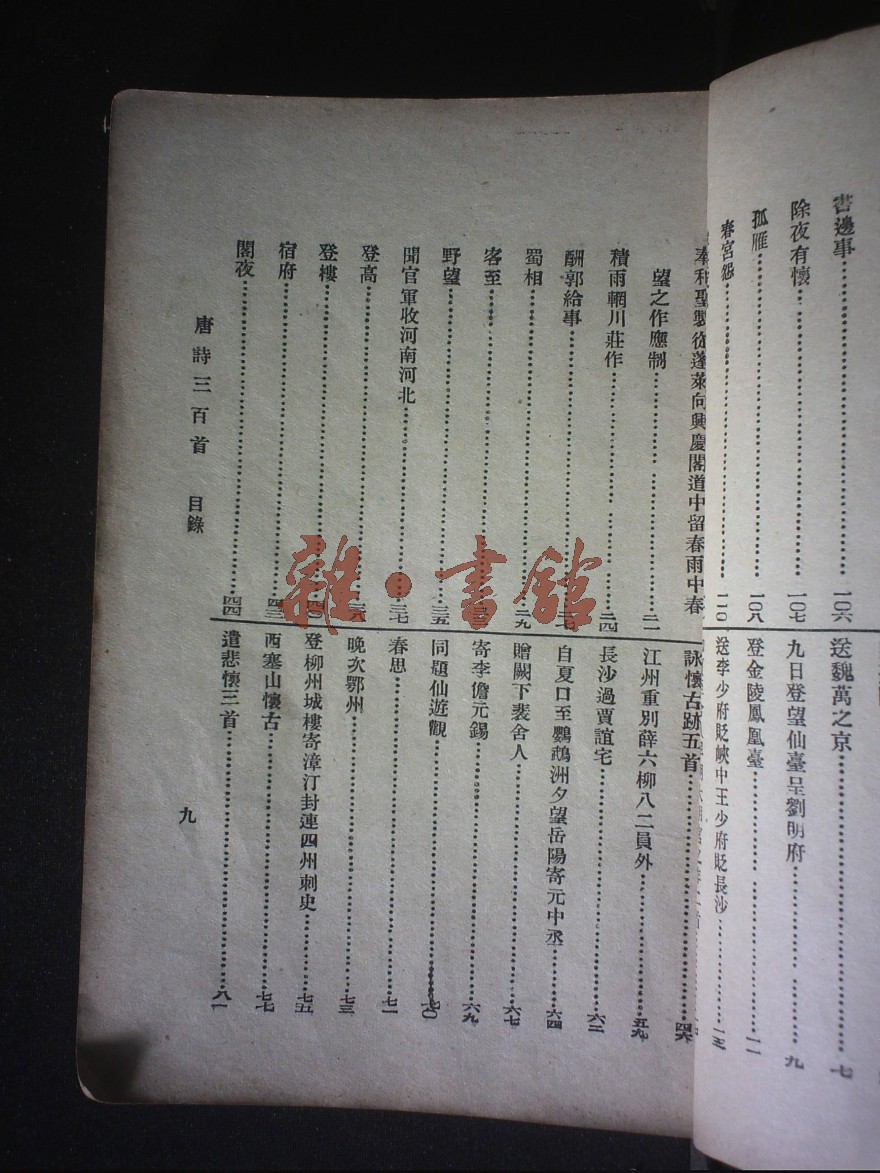 書邊事……一〇六
除夜有懷……一〇七
孤雁……一〇八
春宮怨……一一〇
送魏萬之京……七
九日登望仙臺呈劉明府……九
登金陵鳳凰臺……一一
送李少府貶峽中王少府貶長沙……一五
奉和聖製從蓬萊向興慶閣道中留春雨中春
望之作應制……二一
積雨輞川莊作……二四
酬郭給事……二七
蜀相……二九
客至
野望……三五
聞官軍收河南河北……三七
登高……三八
登樓……四〇
宿府……四三
閣夜……四四
詠懷古跡五首……四六
江州重別薛六柳八二員外……五九
長沙過賈誼宅……六二
自夏口至鸚鵡洲夕望岳陽寄元中丞……六四
贈闕下裴舍人……六七
寄李儋元錫……六九
同題仙遊觀……七〇
春思……七一
晚次鄂州……七三
登柳州城樓寄漳汀封連四州刺史……七五
西塞山懷古……七七
遣悲懷三首……八一
唐詩三百首 目錄
九
雜·書館